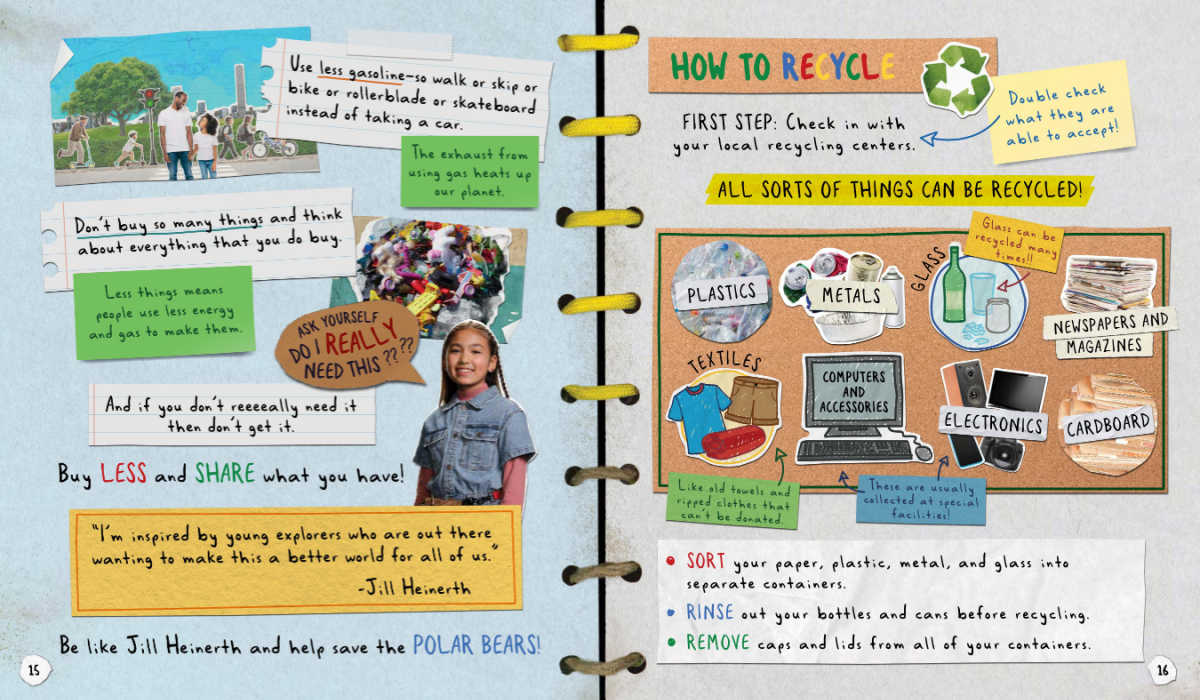 Use less gasoline—so walk or skip or
bike or rollerblade or skateboard
instead of taking a car.
The exhaust from
using gas heats up
our planet.
Don't buy so many things and think
about everything that you do buy.
Less things means
people use less energy
and gas to make them.
ASK YOURSELF
DO I REALLY
NEED THIS ????
And if you don't reeeeally need it
then don't get it.
Buy LESS and SHARE what you have!
"I'm inspired by young explorers who are out there
wanting to make this a better world for all of us."
-Jill Heinerth
Be like Jill Heinerth and help save the POLAR BEARS!
15
HOW TO RECYCLE
FIRST STEP: Check in with
your local recycling centers.
Double check
what they are
able to accept!
ALL SORTS OF THINGS CAN BE RECYCLED!
PLASTICS
METALS
GLASS
Glass can be
recycled many
times!!
NEWSPAPERS AND
MAGAZINES
TEXTILES
COMPUTERS
AND
ACCESSORIES
ELECTRONICS
CARDBOARD
Like old towels and
ripped clothes that
can't be donated.
These are usually
collected at special
facilities!
• SORT your paper, plastic, metal, and glass into
separate containers.
• RINSE out your bottles and cans before recycling.
• REMOVE caps and lids from all of your containers.
16